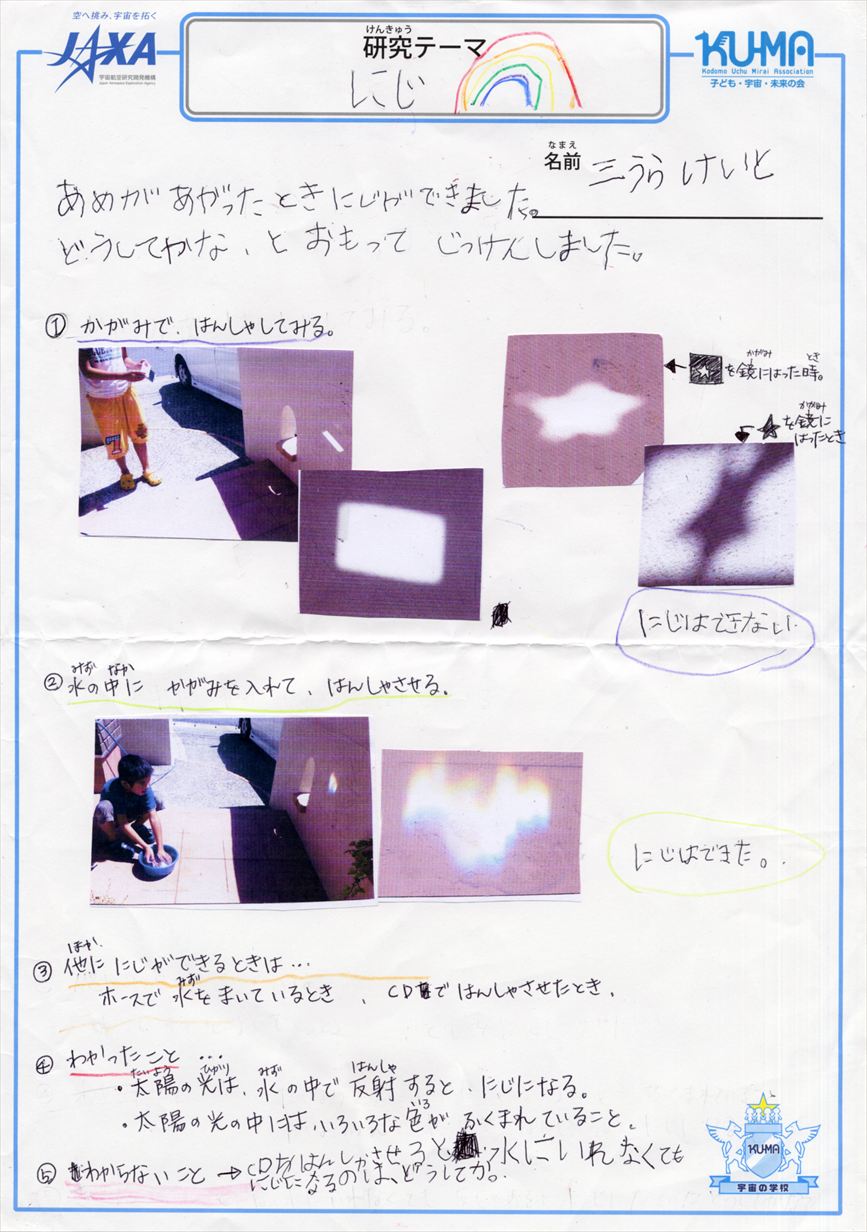 空へ挑み、宇宙を拓く
JAXA
宇宙航空研究開発機構
Japan Aerospace Exploration Agency
けんきゅう
研究テーマ
にじ
KU-MA
Kodomo Uchu Mirai Association
子ども・宇宙・未来の会
なまえ
名前 三うら けいと
あめが あがったときにじができました。
どうしてかな、と おもって じっけんしました。
① かがみで、はんしゃしてみる。
かがみ とき
を鏡にはった時。
かがみ
を鏡に
はったとき
にじはできない.
みず なか
②水の中に かがみを入れて、はんしゃさせる.
にじはできた。.
ほか.
③他に にじができるときは…
みず
ホースで 水をまいているとき 、CDではんしゃさせたとき.
④ わかったこと …
たいよう ひかり みず はんしゃ
・太陽の光は、水の中で反射すると、にじになる。
いろ
・太陽の光の中には、いろいろな色が ふくまれていること。
⑤ わからないこと → CDをはんしゃさせると 水にいれなくても
にじになるのは、どうしてか。.
KU-MA
宇宙の学校